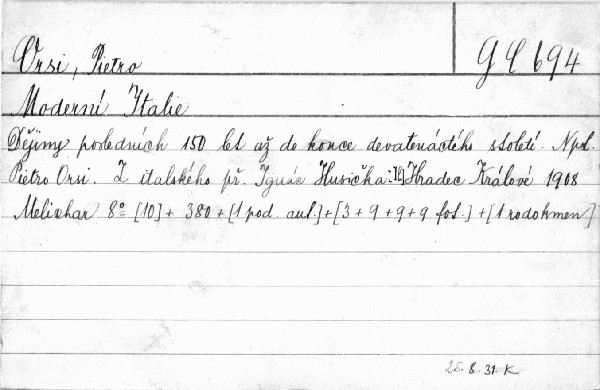 Orsi, Pietro
G C 694
Moderní Italie
Dějiny posledních 150 let až do konce devatenáctého století. Nps.
Pietro Orsi. Z italského př. Ignác Husička. Hradec Králové 1908
Melichar 8º [10] + 380 + [1 pod. aut.] + [3 + 9 + 9 + 9 fot.] + [1 rodokmen]
25. 8. 31. K